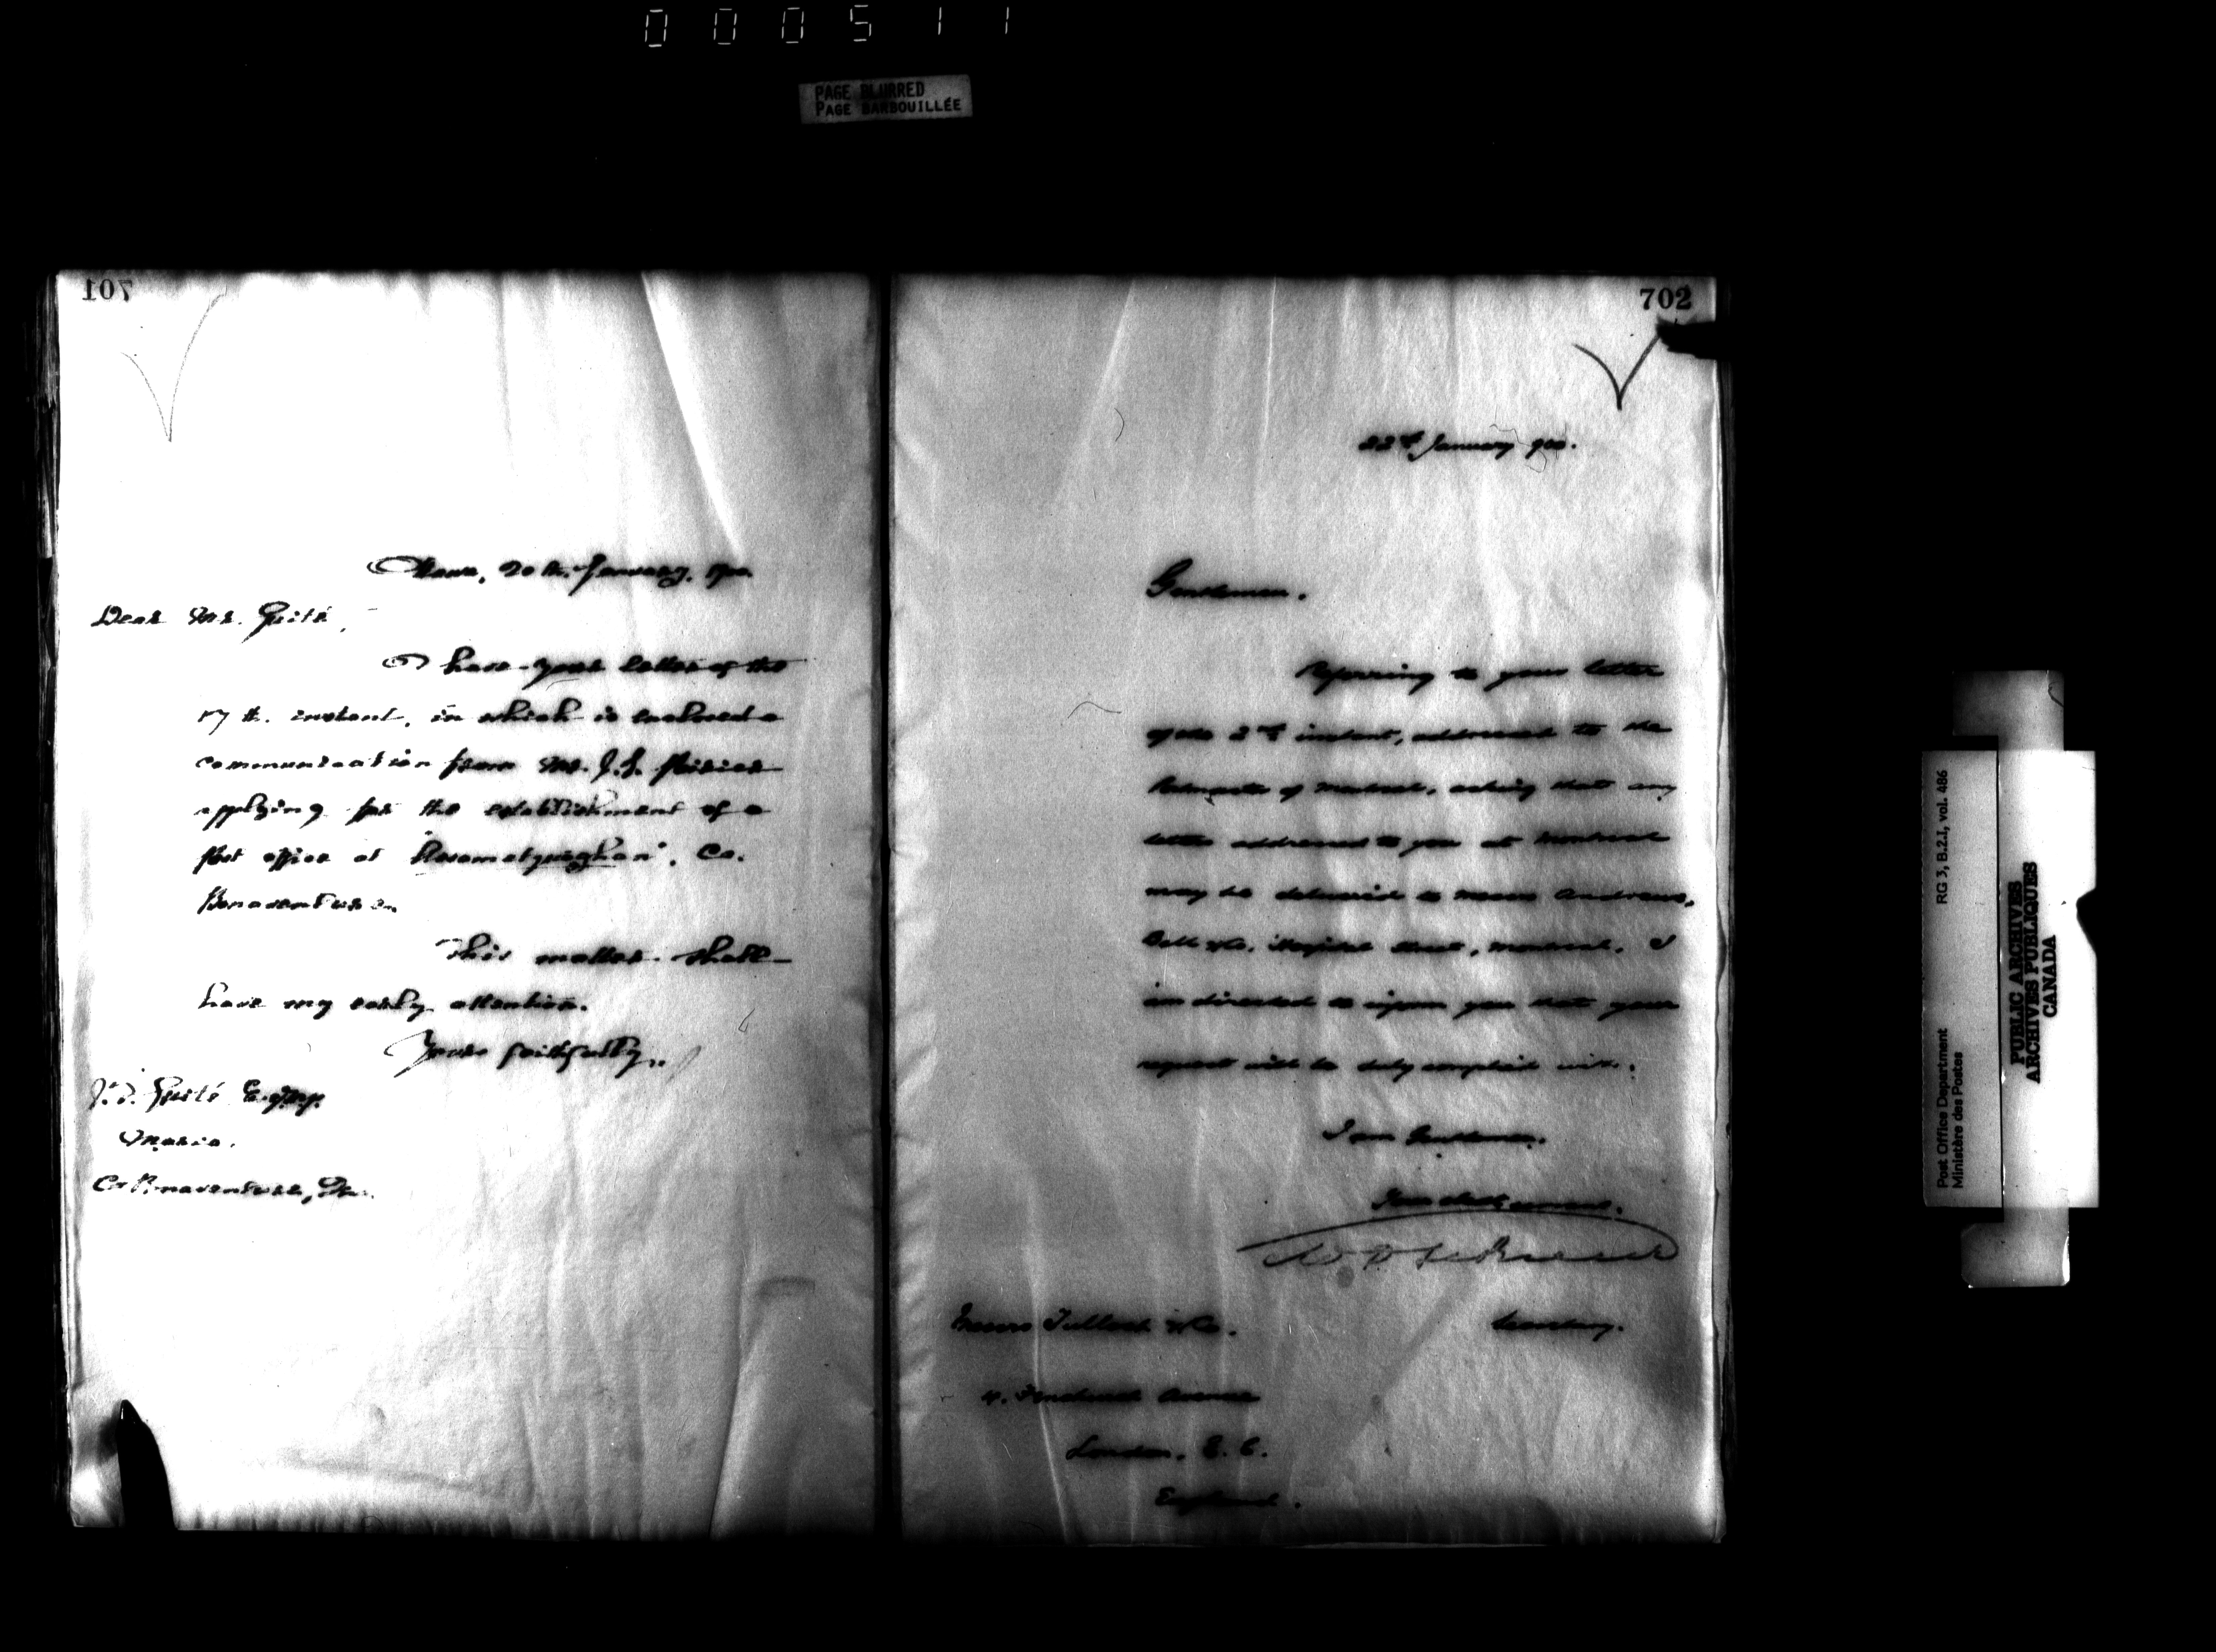 000511
PAGE BLURRED
PAGE BARBOUILLÉE
701
Ottawa, 20th. January, 1900.
Dear Mr. Guité,
I have your letter of the
17th. instant, in which is enclosed a
communication from Mr. J. G. Poirier
applying for the establishment of a
Post office at
Co.
Bonaventure.
This matter shall
have my early attention.
Yours faithfully,
J. F. Guité Esq. M.P.
Maria.
Co Bonaventure, Que.
702
22nd January 900.
Gentlemen.
Referring to your letter
of the 2nd instant, addressed to the
Postmaster of Montreal, asking that any
letter addressed to you at Montreal
may be delivered to Messrs Andrews,
Bell & Co. Hospital Street, Montreal, I
am directed to inform you that your
request will be duly complied with.
I am Gentlemen.
Your obedt servant.
Secretary.
Messrs & Co.
4. Fenchurch Avenue
London, E. C.
England.
Post Office Department
Ministère des Postes
RG 3, B.2.I, vol. 486
PUBLIC ARCHIVES
ARCHIVES PUBLIQUES
CANADA